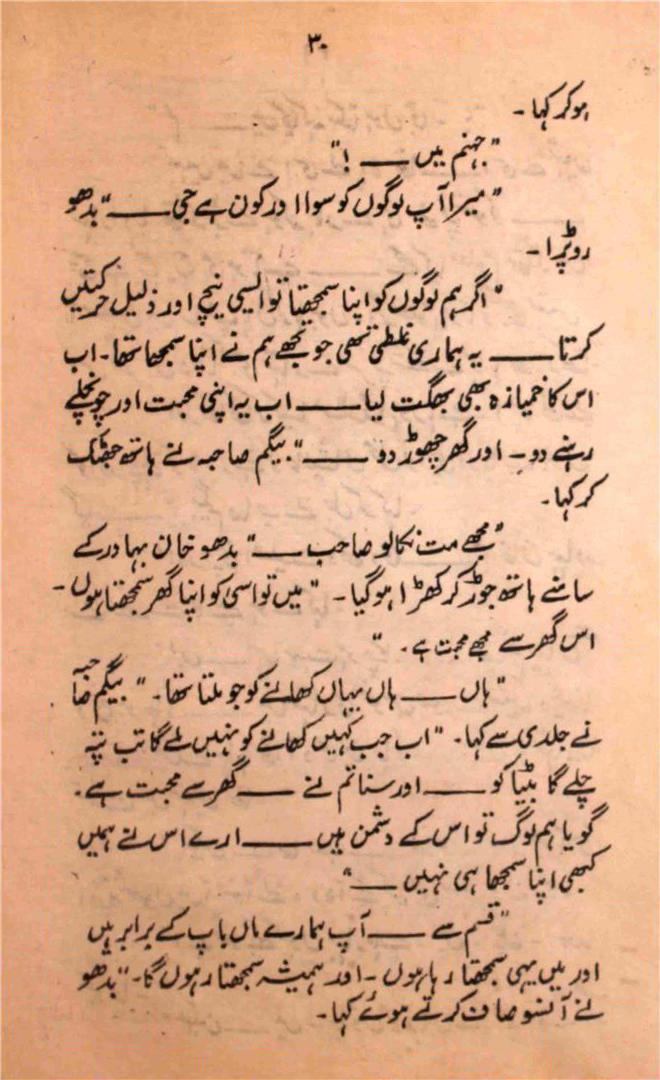 ۳۰
ہوکر کہا۔
"جہنم میں ——— !"
"میرا آپ لوگوں کو سوا اور کون ہے جی ——— "بدھو
رو پڑا۔
"اگر ہم لوگوں کو اپنا سمجھتا تو ایسی نیچ اور ذلیل حرکتیں
کرتا ——— یہ ہماری غلطی تھی جو تجھے ہم نے اپنا سمجھا تھا۔ اب
اس کا خمیازہ بھی بھگت لیا ——— اب یہ اپنی محبت اور چونچلے
رہنے دو۔ اور گھر چھوڑ دو ——— "بیگم صاحبہ نے ہاتھ جھٹک
کر کہا۔
"مجھے مت نکالو صاحب ——— "بدھو خان بہادر کے
سامنے ہاتھ جوڑ کر کھڑا ہوگیا۔ "میں تو اسی کو اپنا گھر سمجھتا ہوں۔
اس گھر سے مجھے محبت ہے۔ "
"ہاں ——— ہاں یہاں کھانے کو جو ملتا تھا۔" بیگم صاحبہ
نے جلدی سے کہا۔ "اب جب کہیں کھانے کو نہیں ملے گا تب پتہ
چلے گا بٹیا کو ——— اور سنا تم نے ——— گھر سے محبت ہے۔
گویا ہم لوگ تو اس کے دشمن ہیں ——— ارے اس نے ہمیں
کبھی اپنا سمجھا ہی نہیں ——— "
"قسم سے ——— آپ ہمارے ماں باپ کے برابر ہیں
اور میں یہی سمجھتا رہا ہوں۔ اور ہمیشہ سمجھتا رہوں گا۔ "بدھو
نے آنسو صاف کرتے ہوئے کہا۔